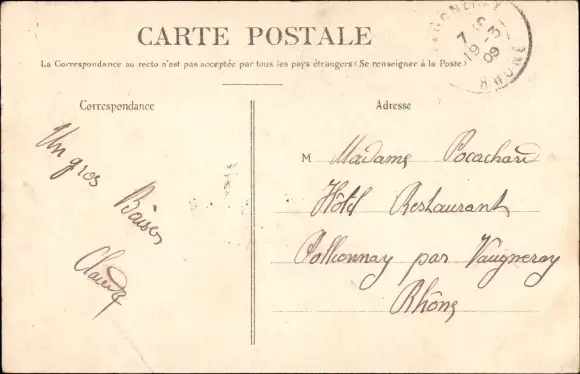 CARTE POSTALE
La Correspondance au recto n'est pas acceptée par tous les pays étrangers (Se renseigner à la Poste)
VAUGNERAY
7
19 -3
09
RHONE
Correspondance
Adresse
Un gros
Baiser
M Madame Pocachard
Hôtel Restaurant
Pollionnay par Vaugneray
Rhône